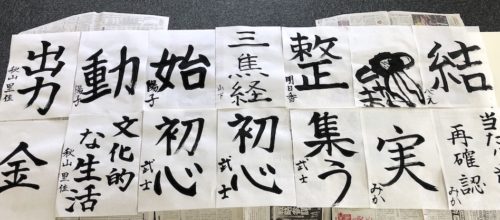 出力
秋山里佳
動
陽子
始
陽子
三焦経
山下
整
明日香
結
金
文化的
な生活
秋山里佳
初心
武士
初心
武士
集う
実
みか
再確認
みか